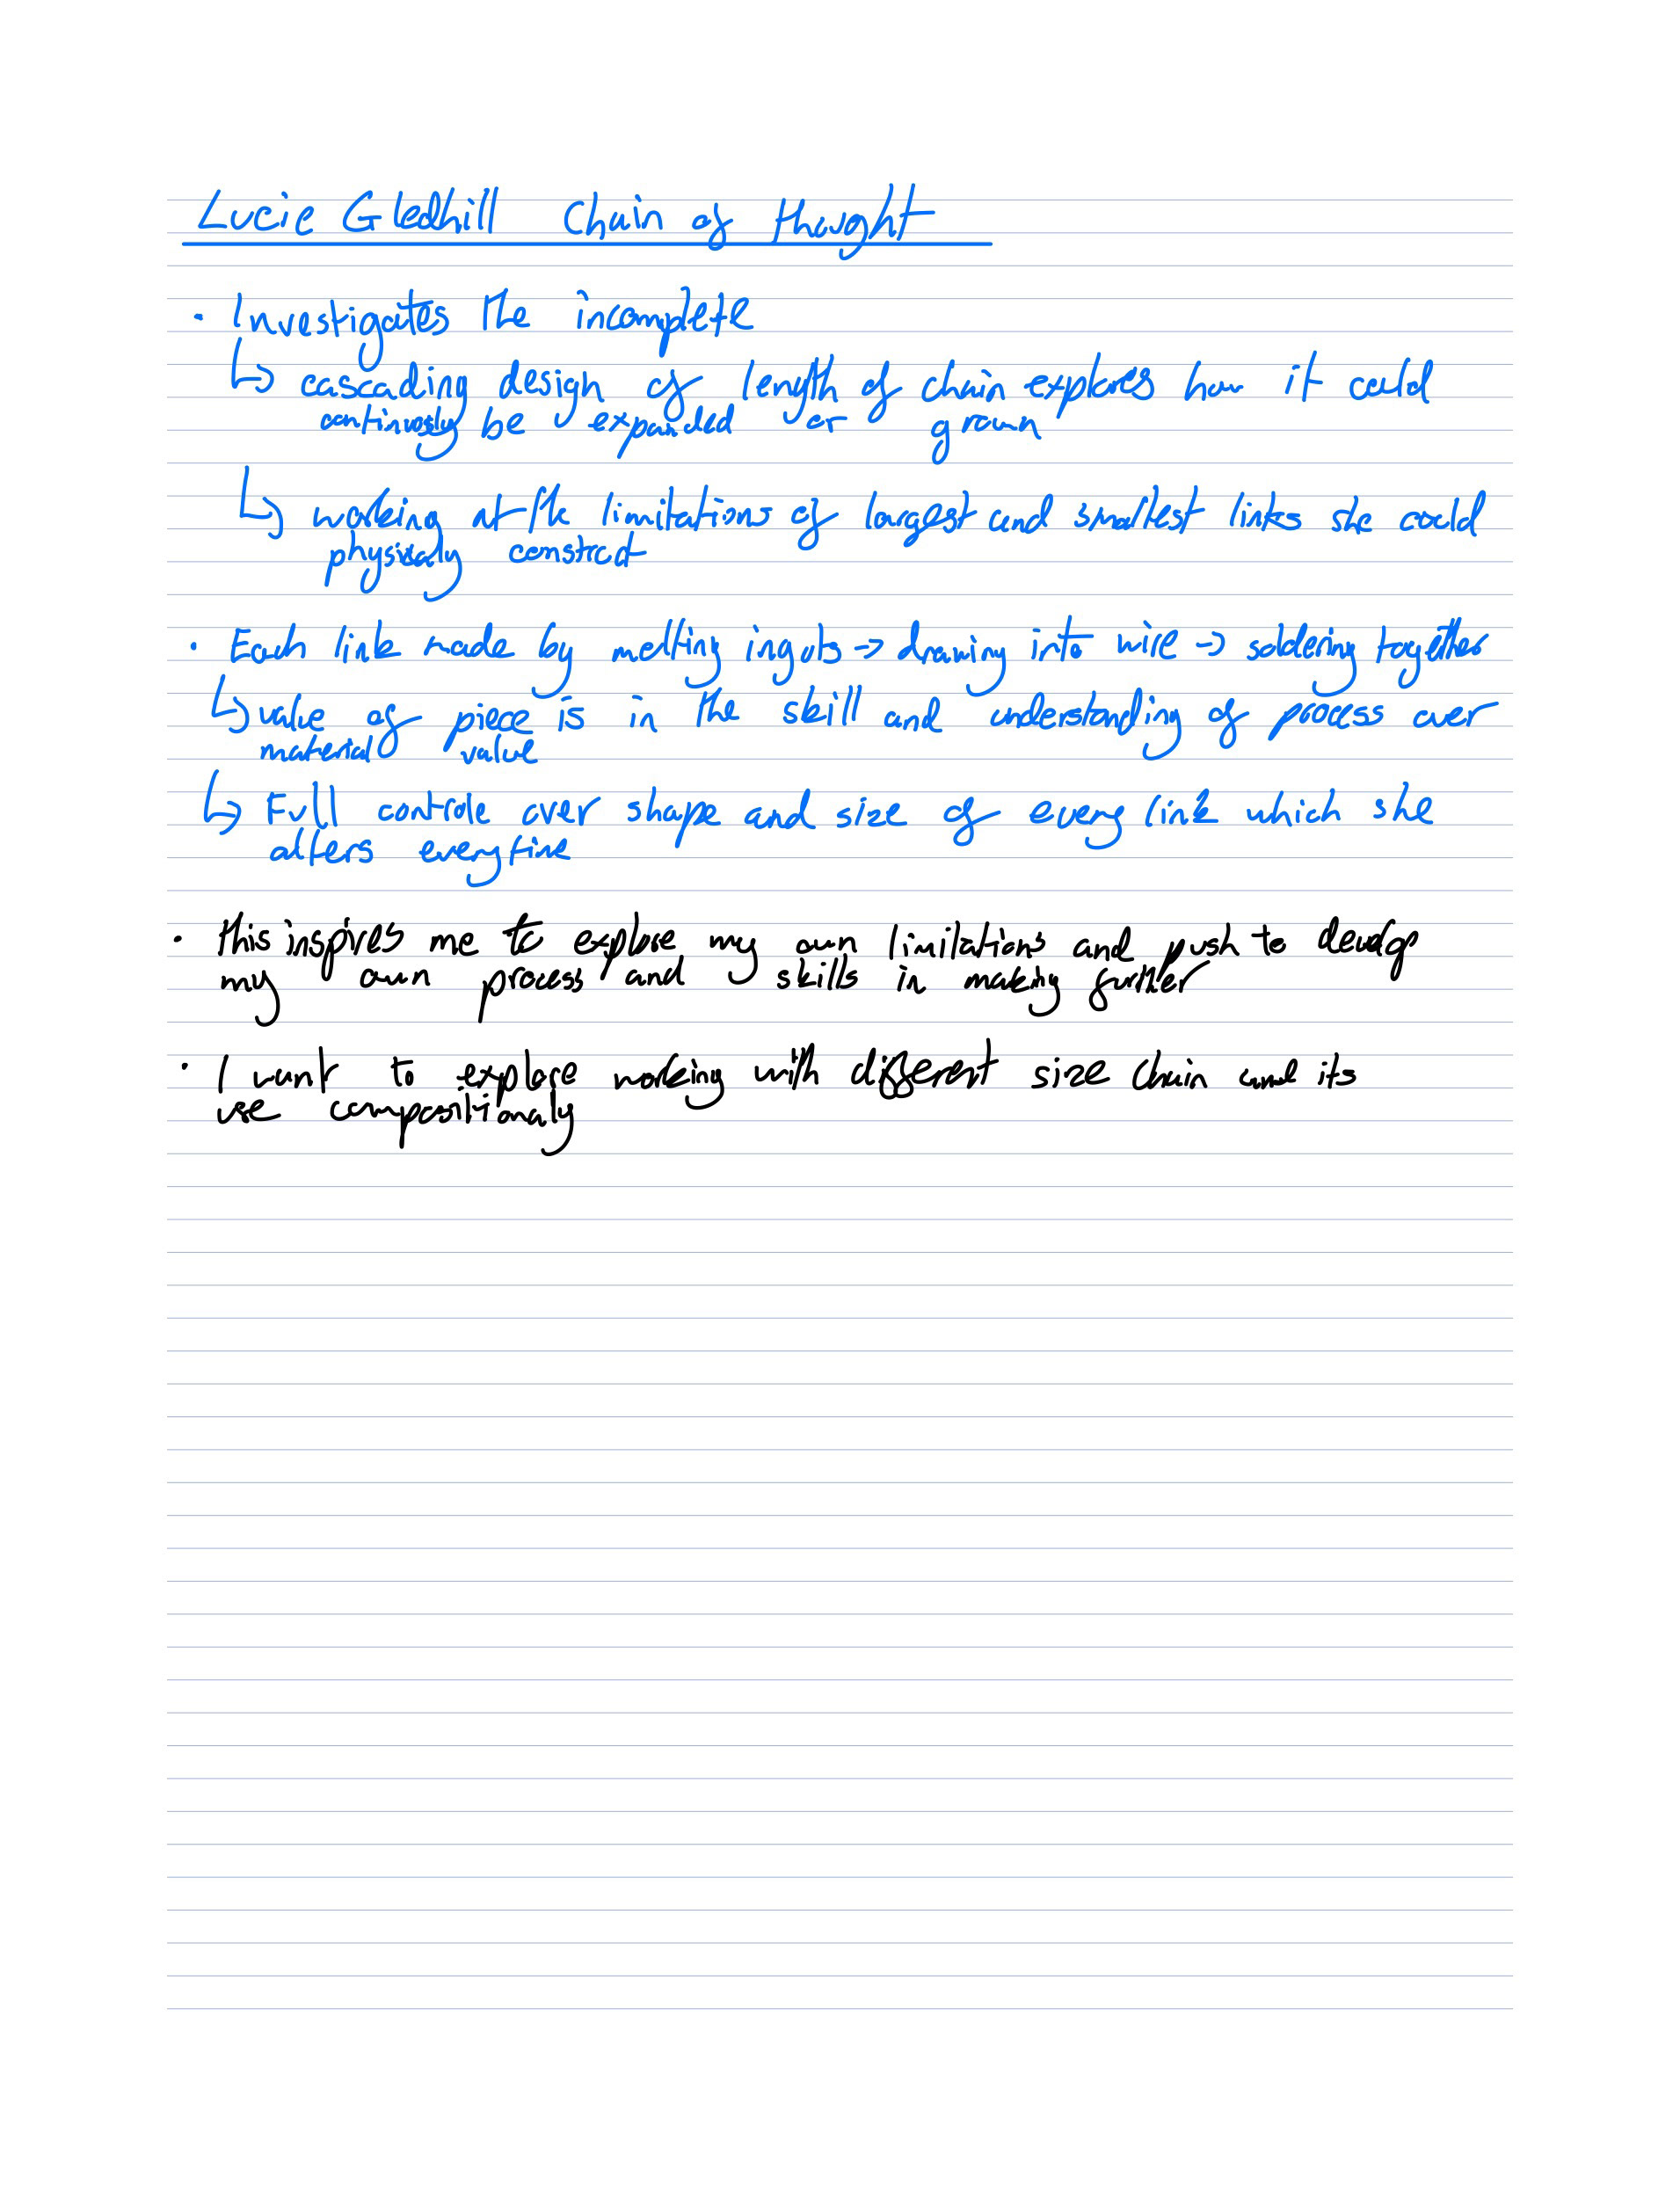 Lucie Gledhill Chain of thought
· Investigates the incomplete
↳ cascading design of length of chain explores how it could
continuosly be expanded or grown
↳ working at the limitations of largest and smallest links she could
physically construct
· Each link made by melting ingots → drawing into wire → soldering together
↳ value of piece is in the skill and understanding of process over
material value
↳ Full controle over shape and size of every link which she
alters everytime
· this inspires me to explore my own limitations and push to develop
my own process and skills in making further
· I want to explore working with different size chain and its
use compositionaly